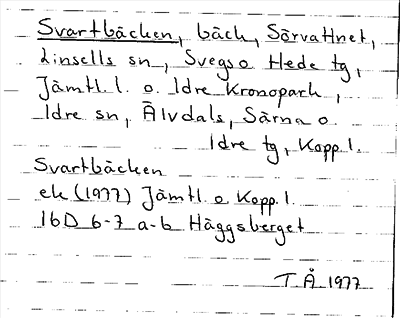 Svartbäcken, bäck, Sörvattnet,
Linsells sn, Svegs o Hede tg,
Jämtl. l. o. Idre Kronopark,
Idre sn, Älvdals, Särna o.
Idre tg, Kopp. l.
Svartbäcken
ek (1977) Jämtl. o Kopp. l.
16D 6-7 a-b Häggsberget
T Å 1977